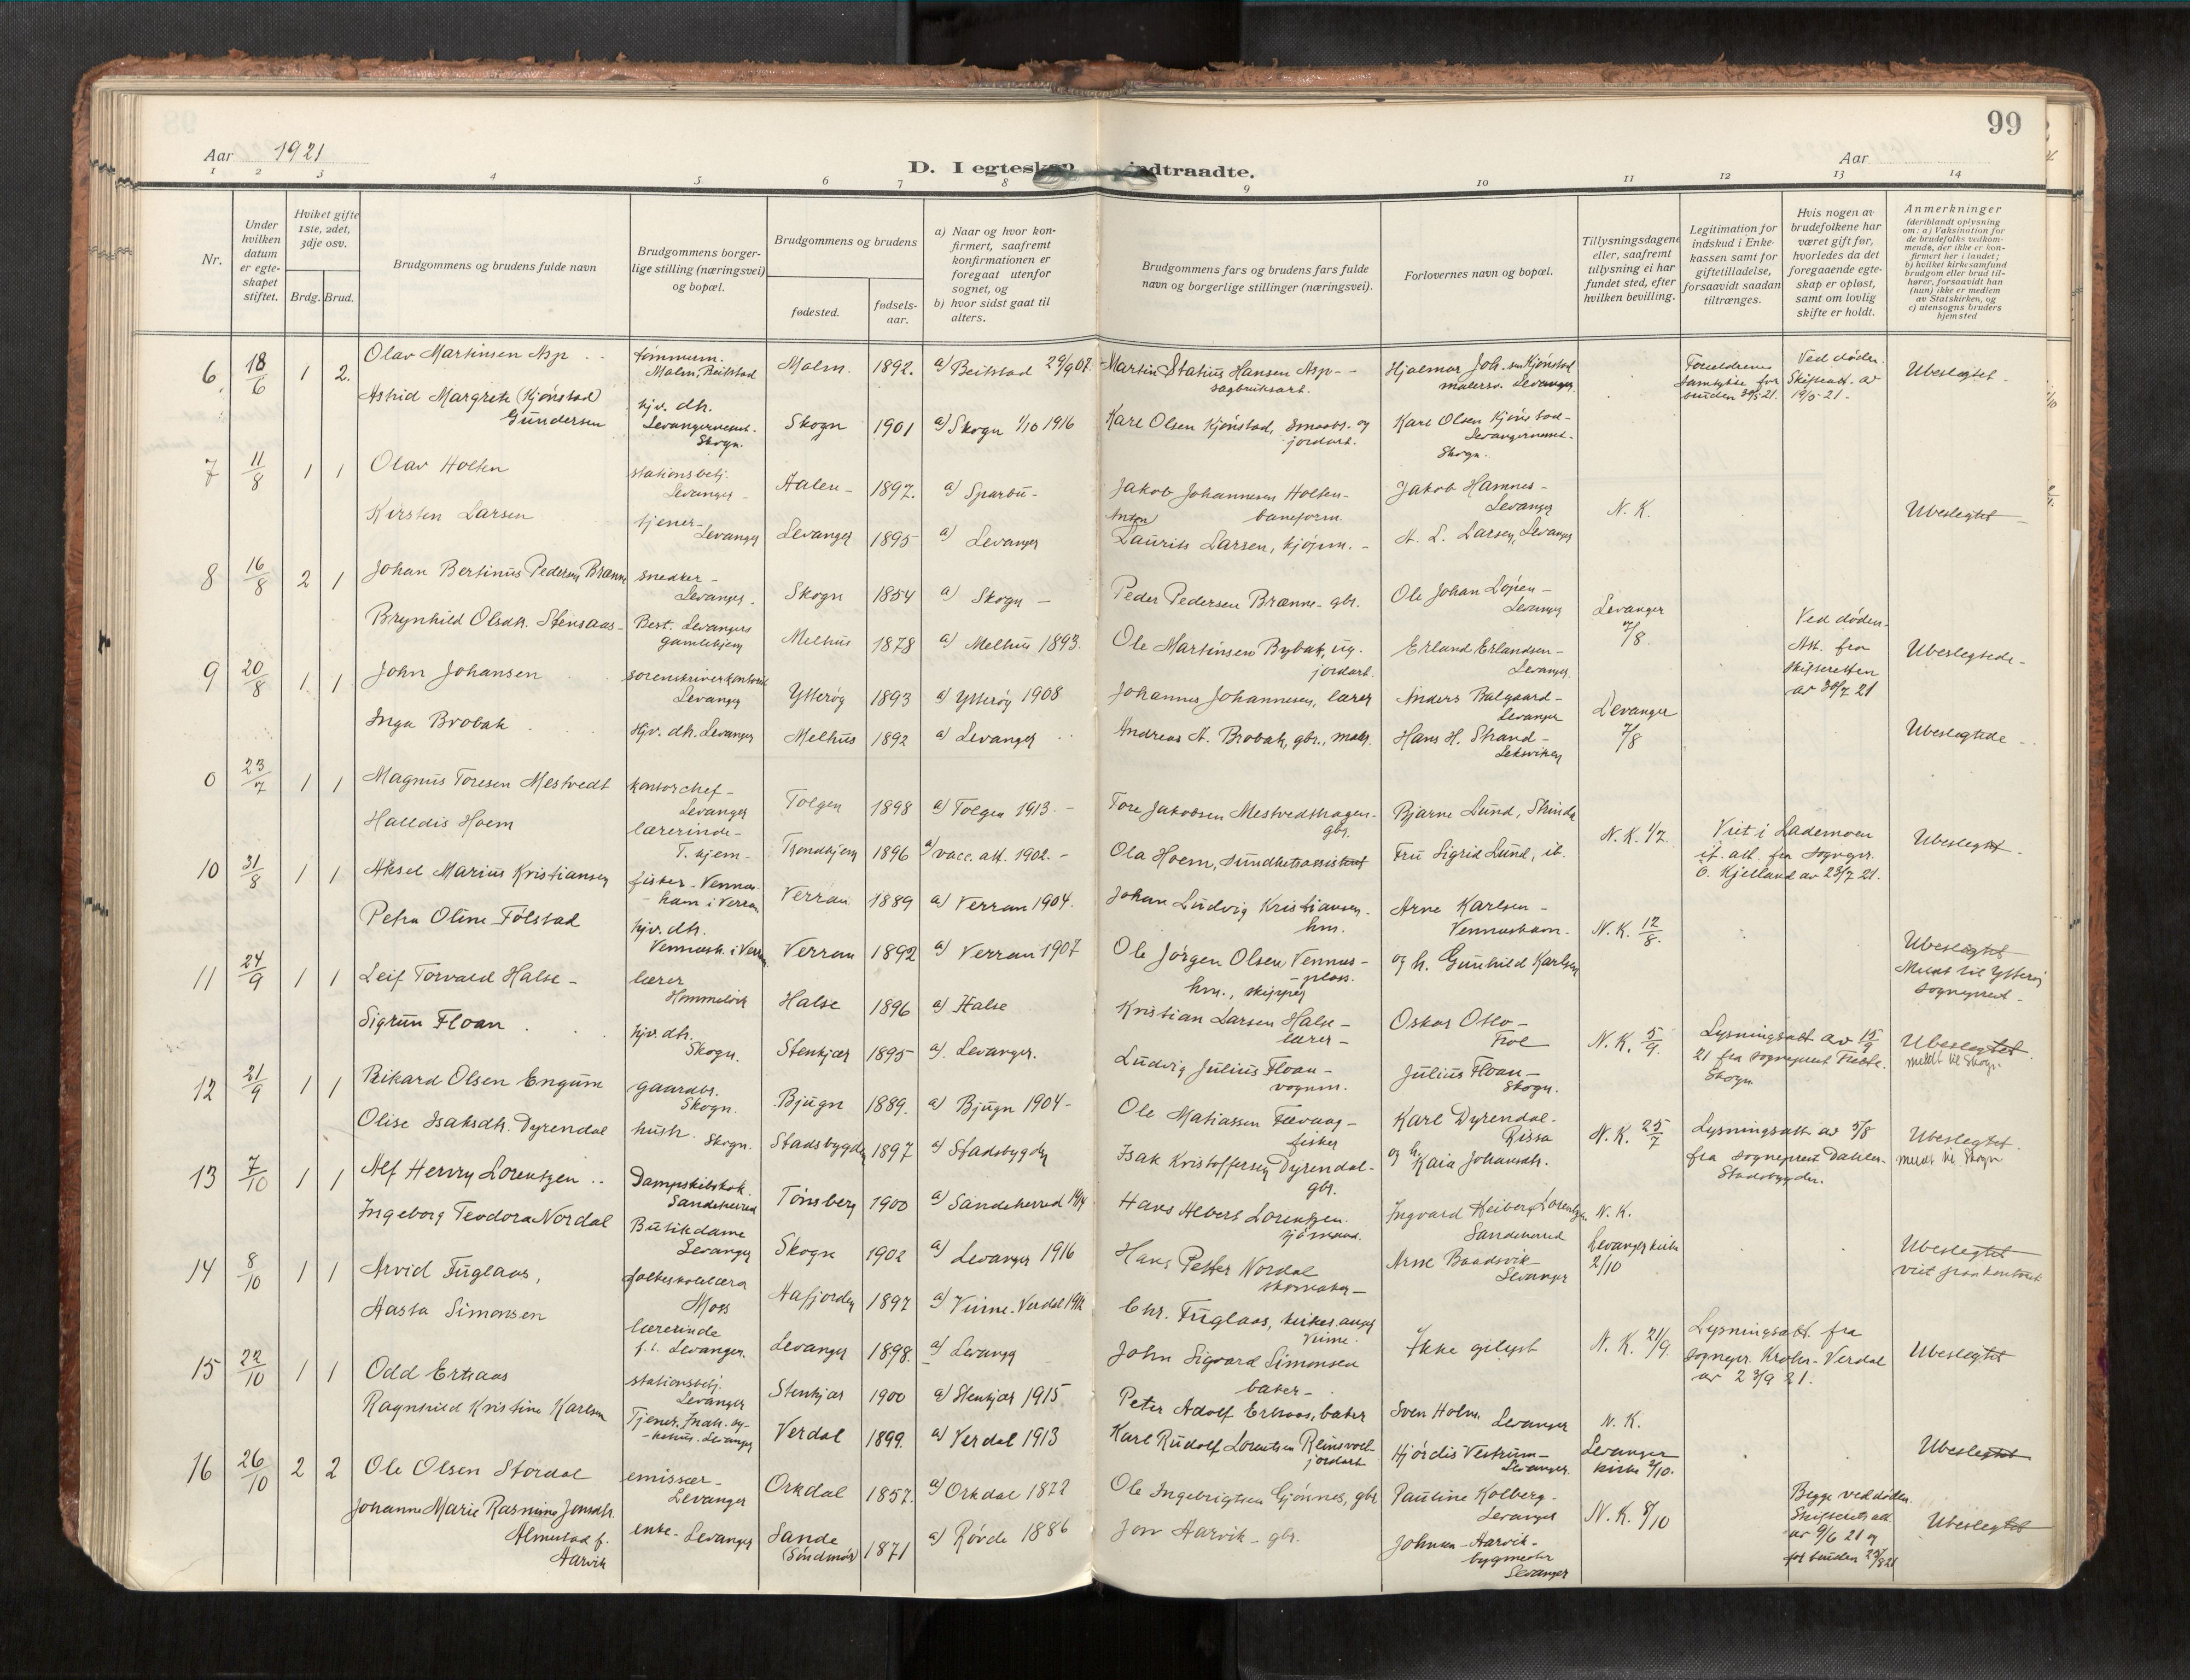 99
Aar 1921
D. I egteska dtraadte.
Aar
1 2 3 4 5 6 7 8 9 10 11 12 13 14
Nr.
Under hvilken datum er egteskapet stiftet.
Hviket gifte 1ste, 2det, 3dje osv.
Brdg. Brud.
Brudgommens og brudens fulde navn
Brudgommens borgerlige stilling (næringsvei) og bopæl.
Brudgommens og brudens
fødested.
fødselsaar.
a) Naar og hvor konfirmert, saafremt konfirmationen er foregaat utenfor sognet, og
b) hvor sidst gaat til alters.
Brudgommens fars og brudens fars fulde navn og borgerlige stillinger (næringsvei).
Forlovernes navn og bopæl.
Tillysningsdagene eller, saafremt tillysning ei har fundet sted, efter hvilken bevilling.
Legitimation for indskud i Enkekassen samt for giftetilladelse, forsaavidt saadan tiltrænges.
Hvis nogen av brudefolkene har været gift før, hvorledes da det foregaaende egteskap er opløst, samt om lovlig skifte er holdt.
Anmerkninger (deriblandt oplysning om: a) Vaksination for de brudefolks vedkommende, der ikke er konfirmert her i landet; b) hvilket kirkesamfund brudgom eller brud tilhører, forsaavidt han (hun) ikke er medlem av Statskirken, og c) utensogns bruders hjemsted
6 18/6 1 2. Olav Martinsen Asp tømmerm. Malm, Beitstad Malm. 1892. a) Beitstad 29/9 07. Martin Statius Hansen Asp - sagbruksarb. Hjalmar Joh.sen Kjønstad malersv. Levanger Foreldrenes samtykke for bruden 30/5 21. Ved døden. Skifteatt. av 19/5 21. Ubeslegtet
Astrid Margrete (Kjønstad) Gundersen hjv. dtr. Levangernesset. Skogn. Skogn 1901 a) Skogn 1/10 1916 Karl Olsen Kjønstad, smaabr. og jordarb. Karl Olsen Kjønstad - Levangernesset - Skogn.
7 11/8 1 1 Olav Holten stationsbetj. Levanger Aalen 1897. a) Sparbu - Jakob Johannesen Holten - baneform. Jakob Hamnes - Levanger N. K. Ubeslegtet
Kirsten Larsen tjener - Levanger Levanger 1895 a) Levanger Anton Laurits Larsen, kjøpm. - A. L. Larsen, Levanger
8 16/8 2 1 Johan Bertinus Pedersen Brænne snedker - Levanger. Skogn 1854 a) Skogn - Peder Pedersen Brænne - gbr. Ole Johan Løpen - Levanger Levanger 7/8. Ved døden. Att. fra skifteretten av 30/7 21 Ubeslegtede -
Brynhild Olsdtr. Stensaas - Best. Levangers gamlehjem Melhus 1878 a) Melhus 1893. Ole Martinsen Bybak, ug. jordarb. Erland Erlandsen - Levanger
9 20/8 1 1 John Johansen sorenskriverkontorist Levanger Ytterøy 1893 a) Ytterøy 1908 Johannes Johannesen, lærer Anders Balgaard - Levanger Levanger 7/8 Ubeslegtede
Inga Brobak hjv. dtr. Levanger Melhus 1892 a) Levanger Andreas A. Brobak, gbr., maler. Hans H. Strand - Leksviken
0 23/7 1 1 Magnus Toresen Mestvedt kontorchef - Levanger Tolgen 1898 a) Tolgen 1913. - Tore Jakobsen Mestvedthagen - gbr. Bjarne Lund, Strinda N. K. 1/7. Viet i Lademoen if. att. fra sognepr. O. Kjelland av 23/7 21. Ubeslegtet
Halldis Hoem lærerinde - T. hjem - Trondhjem 1896 a) vacc. att. 1902. - Ola Hoem, sundhetsassistent Fru Sigrid Lund, ib.
10 31/8 1 1 Aksel Marius Kristiansen fisker - Vennesham i Verran Verran 1889 a) Verran 1904. Johan Ludvig Kristiansen - hm. Arne Karlsen - Venneshamn. N. K. 12/8.
Petra Oline Følstad hjv. dtr. Vennesh. i Verran Verran 1892 a) Verran 1907 Ole Jørgen Olsen Vennes- plass. hm., skipper og h. Gunhild Karlsen Ubeslegtet Meldt til Ytterøy sogneprest -
11 24/9 1 1 Leif Torvald Halse - lærer Hommelvik Halse 1896 a) Halse Kristian Larsen Halse - lærer - Oskar Oslo - Frol N. K. 5/9. Lysningsatt av 15/9 21 fra sogneprest Skogn Ubeslegtet meldt til Skogn
Sigrun Floan hjv. dtr. Skogn. Stenkjær 1895 a) Levanger. Ludvig Julius Floan - vognm. Julius Floan - Skogn.
12 21/9 1 1 Rikard Olsen Engum gaardbr. Skogn. Bjugn 1889. a) Bjugn 1904 - Ole Matiassen Fævaag - fisker Karl Dyrendal. Rissa N. K. 25/7 Lysningsatt av 5/8 fra sogneprest Dahler - Stadsbygden. Ubeslegtet. meldt til Skogn
Olise Isaksdtr. Dyrendal hush. Skogn. Stadsbygden 1897 a) Stadsbygden Isak Kristoffersen Dyrendal - gbr. og h. Kaia Johansdtr.
13 7/10 1 1 Alf Henry Lorentzen Dampskibskok. Sandeherred Tønsberg 1900 a) Sandeherred 1914 Hans Albert Lorentzen. sjømand. Ingvard Heiberg Lorentzen Sandeherred N. K.
Ingeborg Teodora Nordal Butikdame Levanger Skogn 1902 a) Levanger 1916 Hans Petter Nordal skomaker - Arne Baadsvik Levanger Levanger kirke 2/10 Ubeslegtet viet paa kontoret
14 8/10 1 1 Arvid Fuglaas, folkeskolelærer Moss Aafjorden 1897 a) Vinne - Verdal 1912 Chr. Fuglaas, kirkesanger Vinne. Ikke gilyst N. K. 21/9. Lysningsatt. fra sognepr. Krohn - Verdal av 23/9 21. Ubeslegtet
Aasta Simonsen lærerinde f. t. Levanger. Levanger 1898. a) Levanger John Sigvard Simonsen baker -
15 22/10 1 1 Odd Ertsaas stationsbetj. Levanger Stenkjær 1900 a) Stenkjær 1915 Peter Adolf Ertsaas, baker Sven Holm. Levanger N. K.
Ragnhild Kristine Karlsen Tjener. Levanger Verdal 1899. a) Verdal 1913 Karl Rudolf Lorentsen Reinsvoll jordarb. Hjørdis Vestrum - Levanger. Levanger kirke 2/10. Ubeslegtet
16 26/10 2 2 Ole Olsen Stordal emissær - Levanger Orkdal 1857. a) Orkdal 1872 Ole Ingebrigtsen Gjønnes, gbr Pauline Kolberg - Levanger N. K. 8/10 Begge ved døden. Skifteretsatt av 9/6 21 og for bruden 25/8 21 Ubeslegtet
Johanne Marie Rasmine Jonsdtr. Almestad f. Aarvik enke - Levanger Sande (Søndmør) 1871 a) Røvde 1886 Jon Aarvik - gbr. Johnsen - Aarvik - bygmester Levanger